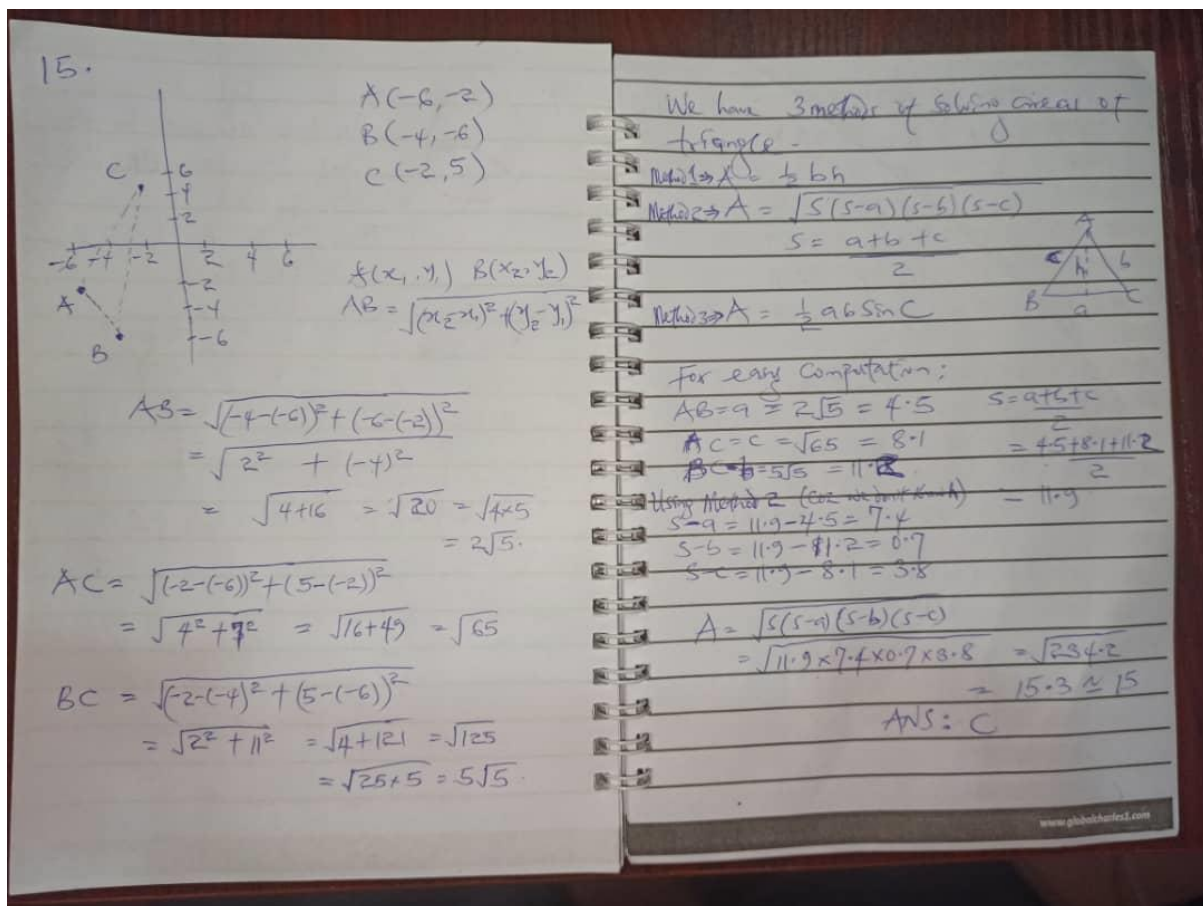 15.
A(-6,-2)
B(-4,-6)
C(-2,5)
C
6
4
2
-6 -4 -2 2 4 6
-2
-4
-6
A
B
A(x₁, y₁) B(x₂, y₂)
AB = √(x₂-x₁)²+(y₂-y₁)²
AB = √(-4-(-6))² + (-6-(-2))²
= √2² + (-4)²
= √4+16 = √20 = √4×5
= 2√5.
AC = √(-2-(-6))² + (5-(-2))²
= √4² + 7² = √16+49 = √65
BC = √(-2-(-4)² + (5-(-6))²
= √2² + 11² = √4+121 = √125
= √25×5 = 5√5.
We have 3 methods of solving areas of
triangle.
Method 1⇒ A = ½ bh
Method 2⇒ A = √S(S-a)(S-b)(S-c)
S = a+b+c
2
Method 3⇒ A = ½ ab Sin C
A
c h b
B a C
For easy Computation:
AB = a = 2√5 = 4.5 S = a+b+c
2
AC = c = √65 = 8.1 = 4.5+8.1+11.2
2
BC = b = 5√5 = 11.2
Using Method 2 (Coz we don't know h) = 11.9
S-a = 11.9-4.5 = 7.4
S-b = 11.9-11.2 = 0.7
S-c = 11.9-8.1 = 3.8
A = √S(S-a)(S-b)(S-c)
= √11.9×7.4×0.7×3.8 = √234.2
= 15.3 ≃ 15
ANS: C
www.globalcharles2.com